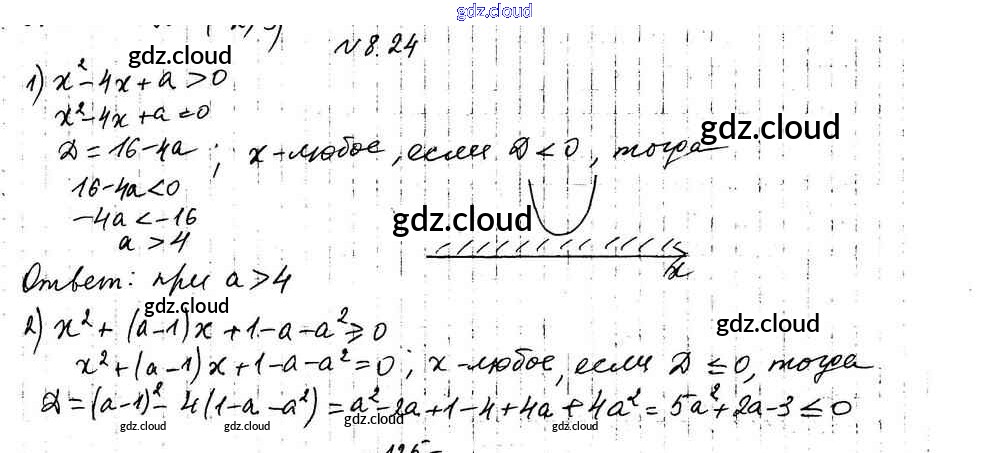 gdz.cloud
№ 8.24
gdz.cloud
1) x² - 4x + a > 0
x² - 4x + a = 0
gdz.cloud
D = 16 - 4a ; x - любое, если D < 0, тогда
16 - 4a < 0
-4a < -16
gdz.cloud
a > 4
x
Ответ: при a > 4
gdz.cloud
gdz.cloud
2) x² + (a-1)x + 1 - a - a² ≥ 0
x² + (a-1)x + 1 - a - a² = 0 ; x - любое, если D ≤ 0, тогда
D = (a-1)² - 4(1-a-a²) = a² - 2a + 1 - 4 + 4a + 4a² = 5a² + 2a - 3 ≤ 0
gdz.cloud gdz.cloud gdz.cloud gdz.cloud